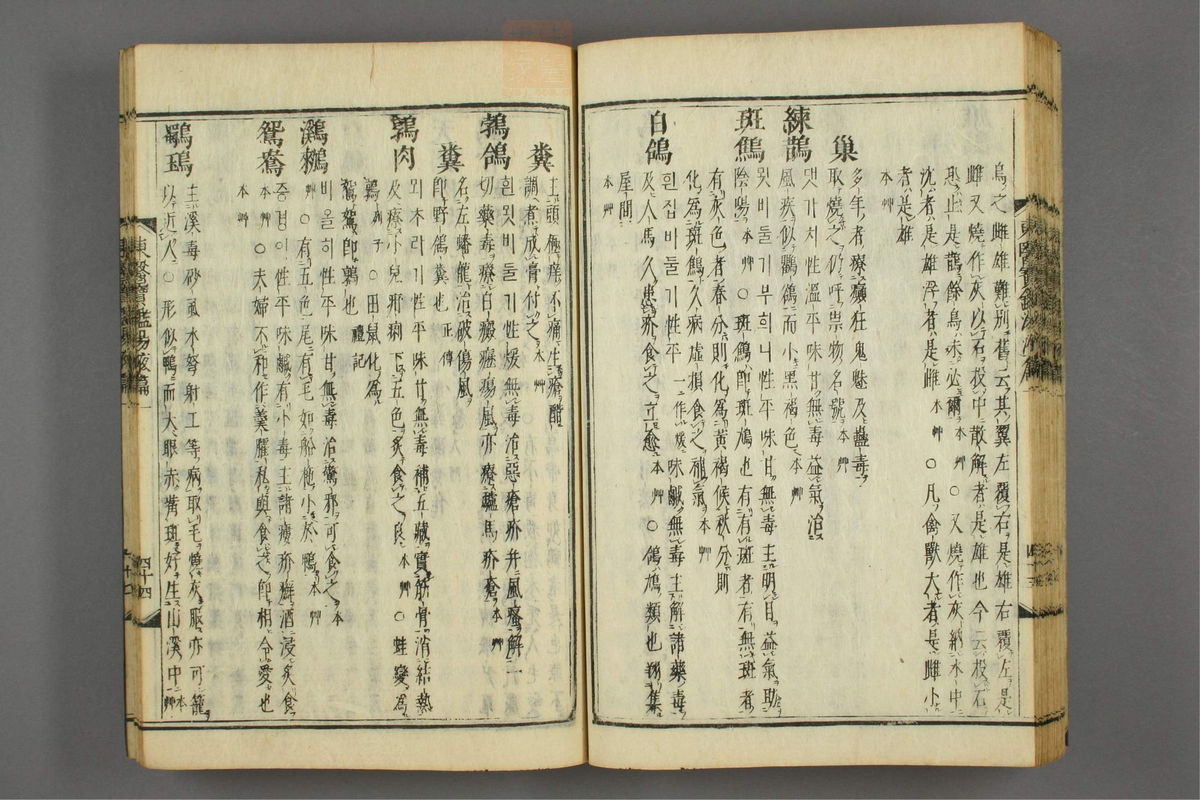 鳥之雌雄難別舊云其翼左覆右是雄右覆左是
雌又燒作灰以石投中散解者是雄也今云投石
恐止是鵲餘鳥未必爾 本艸 ○又燒作灰納水中
沈者是雄浮者是雌 本艸 ○凡禽獸大者是雌小
者是雄
本艸
巢
多年者療癲狂鬼魅及蠱毒
取燒之仍呼祟物名號 本艸
練鵲
댓가치性溫平味甘無毒益氣治
風疾似鸜鵒而小黑褐色 本艸
斑鷦
묏비둘기부희니性平味甘無毒主明目益氣助
陰陽 本艸 ○斑鷦即斑鳩也有有斑者有無斑者
有灰色者春分則化爲黃褐候秋分則
化爲斑鷦久病虛損食之補氣 本艸
白鴿
흰집비둘기性平 一作煖 味鹹無毒主解諸藥毒
及人馬久患疥食之立愈 本艸 ○鴿鳩類也翔集
屋間
本艸
糞
主頭極痒不痛生瘡醋
調煮成膏付之 本艸
鵓鴿
흰묏비둘기性煖無毒治惡瘡疥幷風瘙解一
切藥毒療白癜癧瘍風亦療驢馬疥瘡 本艸
糞
名左蟠龍治破傷風
即野鴿糞也 正傳
鶉肉
뫼초라기性平味甘無毒補五藏實筋骨消結熱
及療小兒疳痢下五色炙食之良 本艸 ○蛙變爲
鶉 列子 ○田鼠化爲
鴽鴽即鶉也 禮記
鸂鷘
비올히性平味甘無毒治驚邪可食之 本
艸 ○有五色尾有毛如船柂小於鴨 本艸
鴛鴦
증경이性平味鹹有小毒主諸瘻疥癬酒浸炙食
本艸 ○夫婦不和作羹臛私與食之即相令愛也
本艸
鸀鳿
主溪毒砂虱水弩射工等病取毛燒灰服亦可籠
以近人○形似鴨而大眼赤觜斑好生山溪中 本艸
東醫寶鑑湯液篇一
四十四